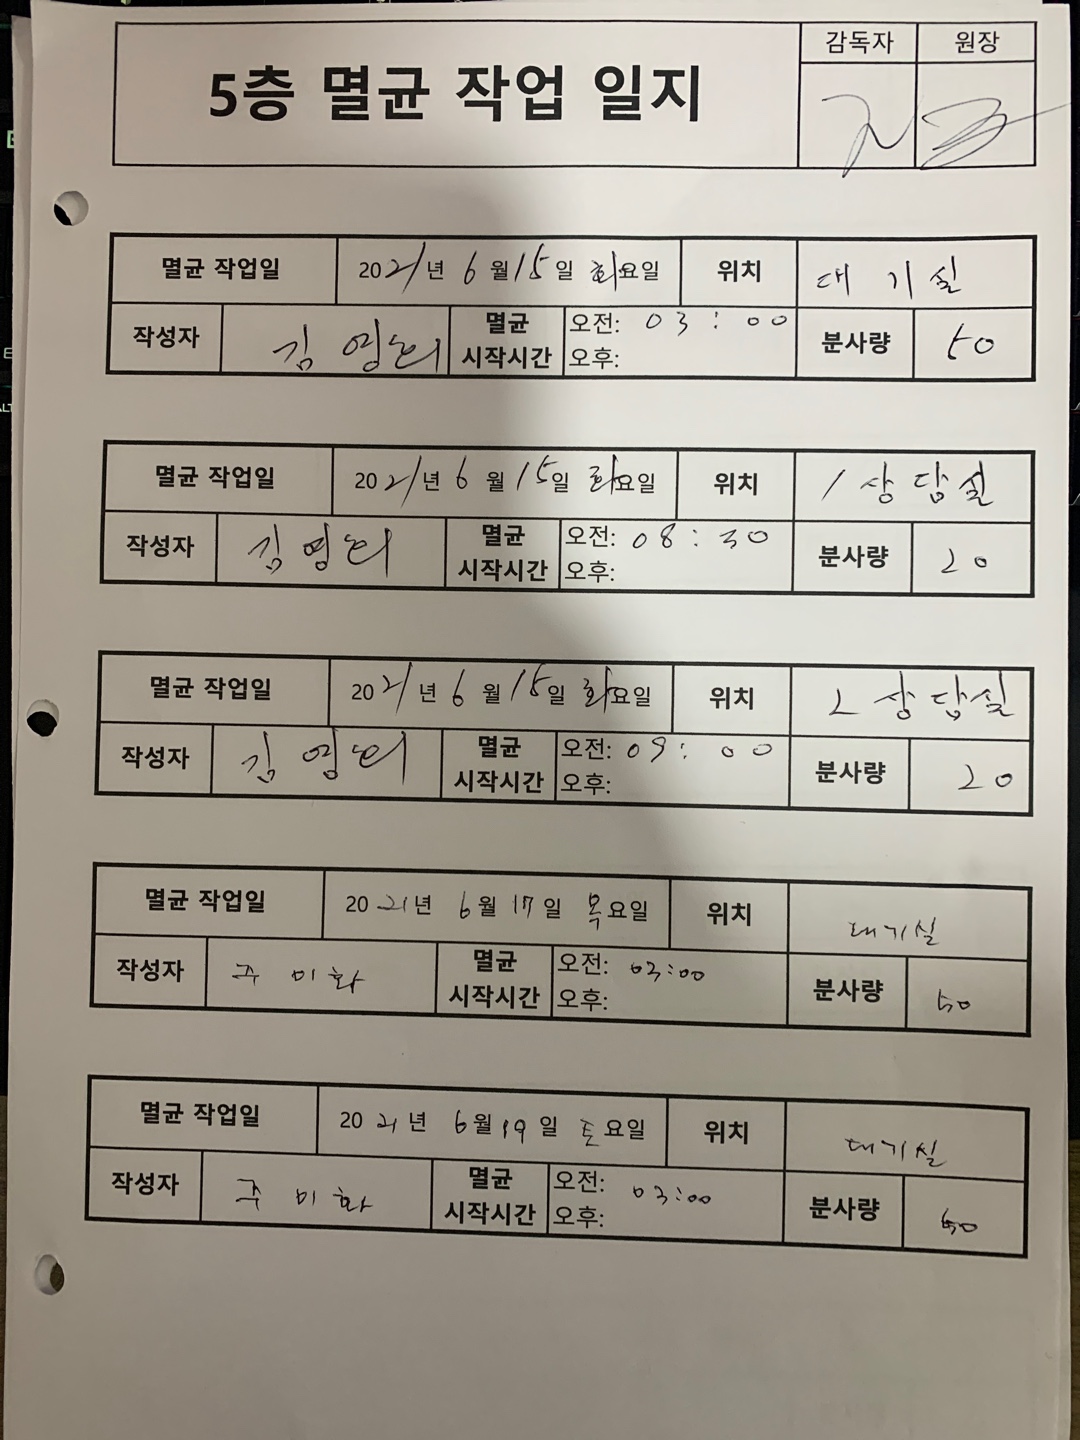 감독자 원장
5층 멸균 작업 일지
멸균 작업일 2021년 6월 15일 화요일 위치 대기실
작성자 김영희 멸균 시작시간 오전: 03:00 분사량 50
오후:
멸균 작업일 2021년 6월 15일 화요일 위치 1상담실
작성자 김영희 멸균 시작시간 오전: 08:30 분사량 20
오후:
멸균 작업일 2021년 6월 15일 화요일 위치 2상담실
작성자 김영희 멸균 시작시간 오전: 09:00 분사량 20
오후:
멸균 작업일 2021년 6월 17일 목요일 위치 대기실
작성자 주미화 멸균 시작시간 오전: 03:00 분사량 50
오후:
멸균 작업일 2021년 6월 19일 토요일 위치 대기실
작성자 주미화 멸균 시작시간 오전: 03:00 분사량 50
오후: